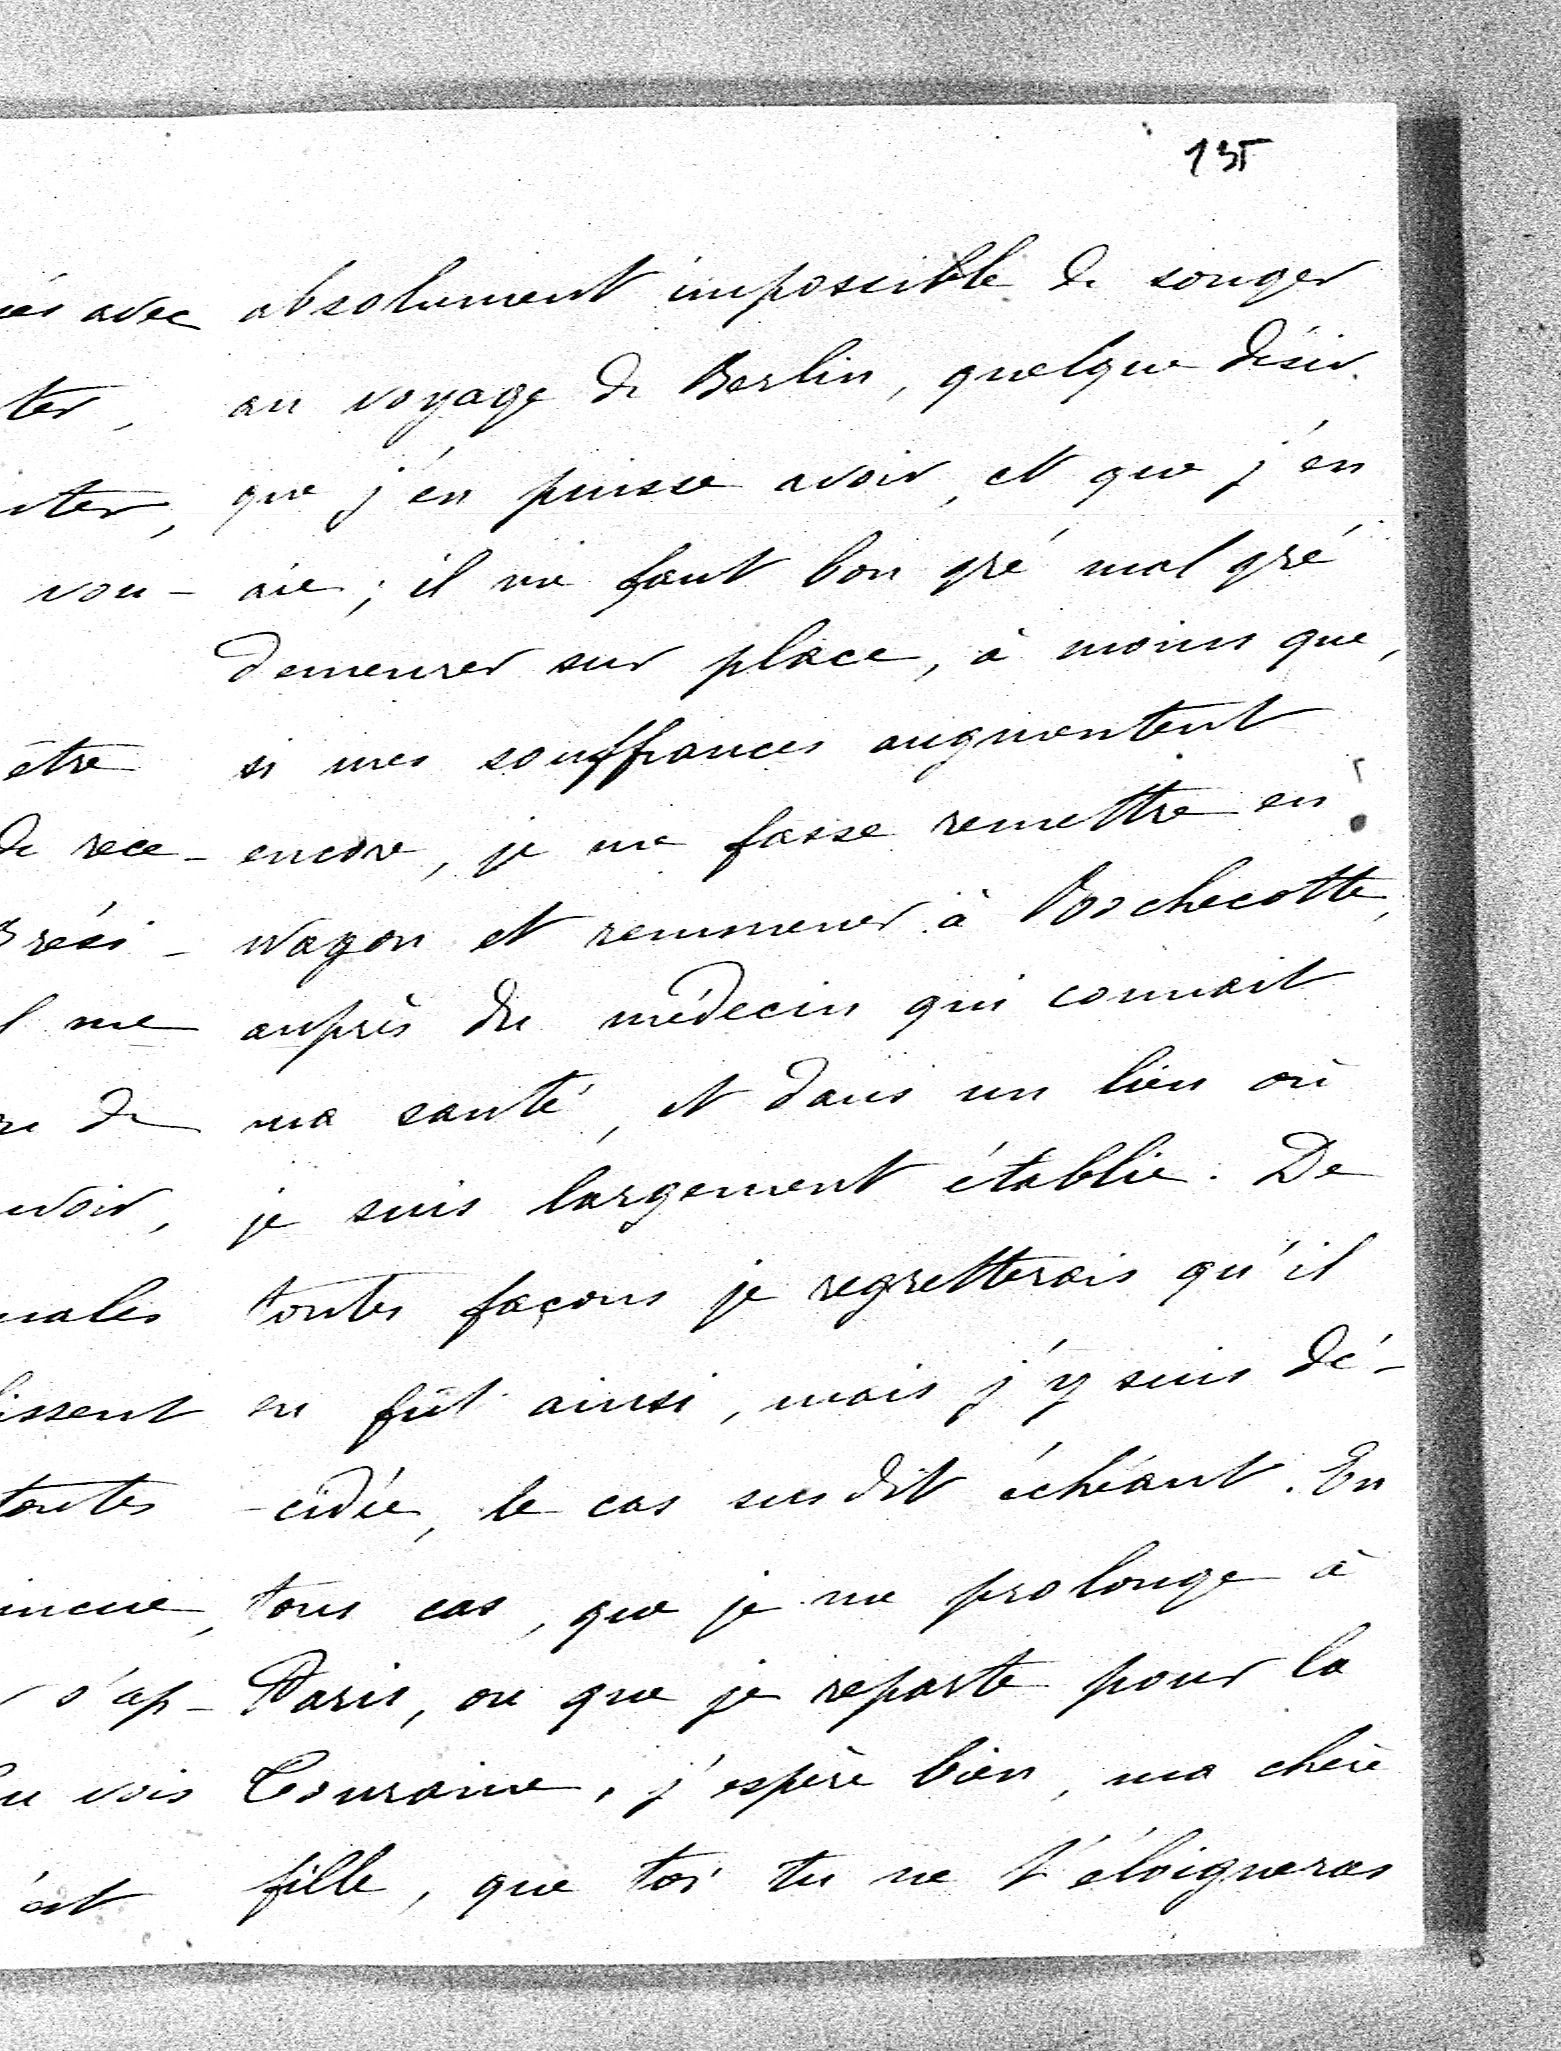 135
absolument impossible de songer
au voyage de Berlin, quelque désir
que j'en puisse avoir, et que j'en
aie ; il me faut bon gré mal gré
demeurer sur place, à moins que,
si mes souffrances augmentent
encore, je me fasse remettre en
wagon et remmener à Rochecotte,
auprès du médecin qui connait
ma santé, et dans un lieu où
je suis largement établie. De
toutes façons je regretterais qu'il
en fût ainsi, mais j'y suis dé-
-cidée, le cas susdit échéant. En
tous cas, que je me prolonge à
Paris, ou que je reparte pour la
Touraine, j'espère bien, ma chère
fille, que toi tu ne t'éloigneras
avec
vou-
être
de rece-
me
de
toutes
s'ap-
vois